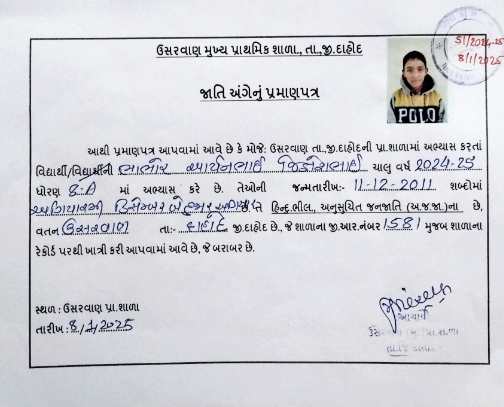 51/2024-25
8/1/2025
ઉસરવાણ મુખ્ય પ્રાથમિક શાળા., તા.,જી.દાહોદ
જાતિ અંગેનું પ્રમાણપત્ર
POLO
આથી પ્રમાણપત્ર આપવામાં આવે છે કે મોજેઃ ઉસરવાણ તા.,જી.દાહોદની પ્રા.શાળામાં અભ્યાસ કરતાં
વિદ્યાર્થી/વિદ્યાર્થીની ભાભોર આર્યનભાઈ ચાલુ વર્ષ 2024-25
ધોરણ 8-A માં અભ્યાસ કરે છે. તેઓની જન્મતારીખઃ- 11-12-2011 શબ્દોમાં
અગિયારમી ડિસેમ્બર બે હજાર અગિયાર છે. તે હિન્દુ ભીલ, અનુસૂચિત જનજાતિ (અ.જ.જા.)ના છે,
વતન ઉસરવાણ તાઃ- દાહોદ જી.દાહોદ છે., જે શાળાના જી.આર.નંબર 1581 મુજબ શાળાના
રેકોર્ડ પરથી ખાત્રી કરી આપવામાં આવે છે, જે બરાબર છે.
સ્થળ : ઉસરવાણ પ્રા.શાળા
તારીખ : 8/1/2025
આચાર્ય